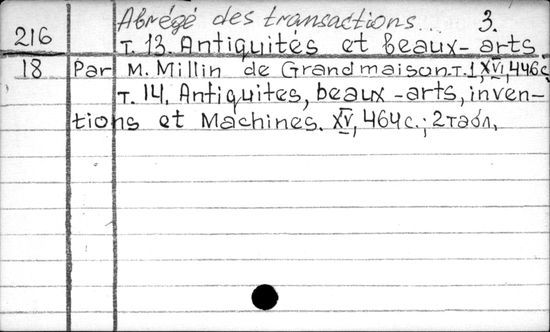 Abrégé des transactions... 3.
216 т. 13. Antiquités et beaux-arts.
18 Par M. Millin de Grandmaison. т. 1, XVI, 446 с.
т. 14. Antiquites, beaux-arts, inven-
tions et Machines. XV, 464 с.; 2 табл.